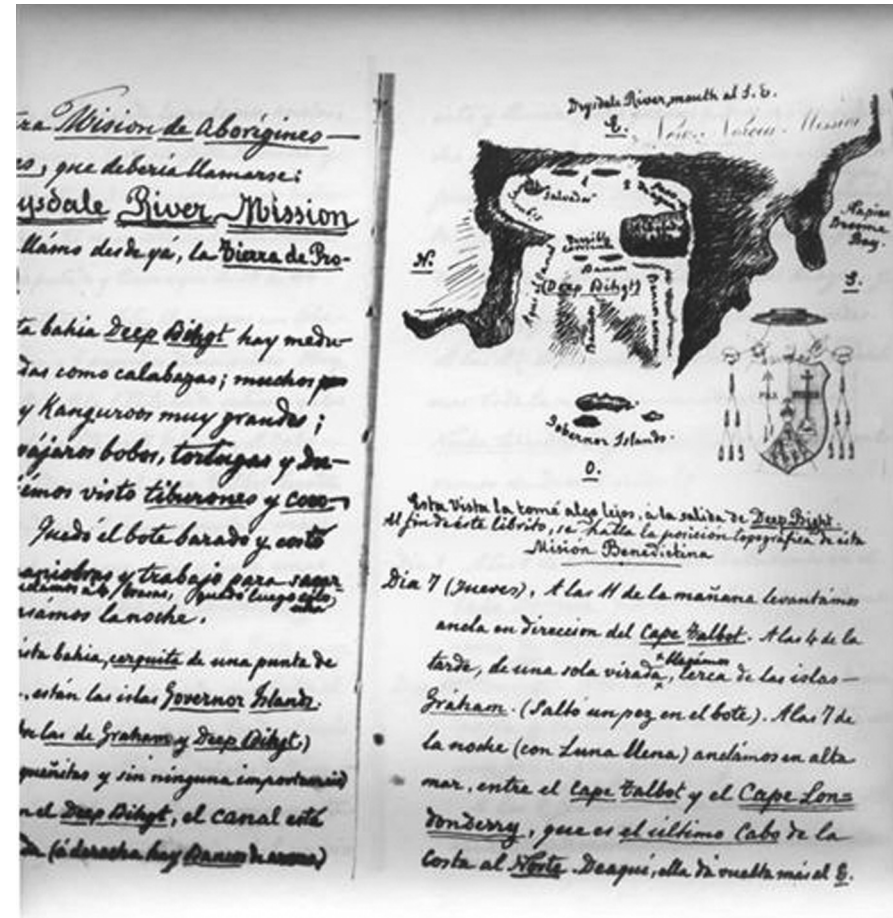 Mision de Aborígenes —
, que debería llamarse:
River Mission
llámo desde yá, la Tierra de Pro-
bahia Deep Bihgt hay madu-
das como calabazas; muchos
y Kanguroos muy grandes;
bobos, tortugas y Du-
émos visto tiburones y coco
Quedó el bote barado y costó
maniobras y trabajo para sacar
quedó luego
lanoche.
bahia, cerquita de una punta de
, están las islas Governor Islands.
las de Graham y Deep Bihgt.)
y sin ninguna importancia)
el Deep Bihgt, el canal está
(á derecha hay Bancos de arena)
Drysdale River, mouth al S. E.
E.
Mission
Napier
Broome
Bay.
N.
Salvador
Possible
Banco
(Deep Bihgt)
S.
PAX
Gobernor Islands.
O.
Esta Vista la tomé algo lejos, á la salida de Deep Bight.
Al fin de éste librito, se halla la posicion topografica de ésta
Mision Benedictina
Dia 7 (Jueves), A las 11 de la mañana levantámos
ancla en direccion del Cape Talbot. A las 4 de la
tarde, de una sola virada, llegámos cerca de las islas —
Gráham. (Saltó un pez en el bote). A las 7 de
la noche (con Luna llena) anclámos en alta
mar, entre el Cape Talbot y el Cape Lon=
donderry, que es el último Cabo de la
costa al Norte. De aquí, ella dá vuelta más al E.